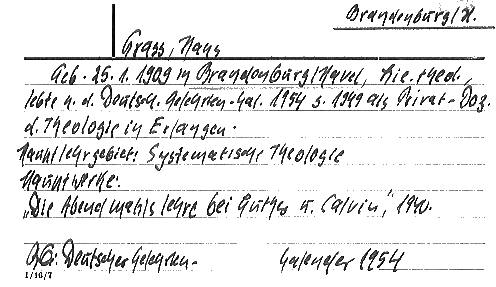 Brandenburg/H.
Grass, Hans
Geb. 25.1.1909 in Brandenburg/Havel, Lic. theol.,
lebte n. d. Deutsch. Gelehrten-Kal. 1954 s. 1949 als Privat-Doz.
d. Theologie in Erlangen.
Hauptlehrgebiet: Systematische Theologie
Hauptwerke:
"Die Abendmahlslehre bei Luther u. Calvin", 1940.
Deutscher Gelehrten- Kalender 1954
1/16/7